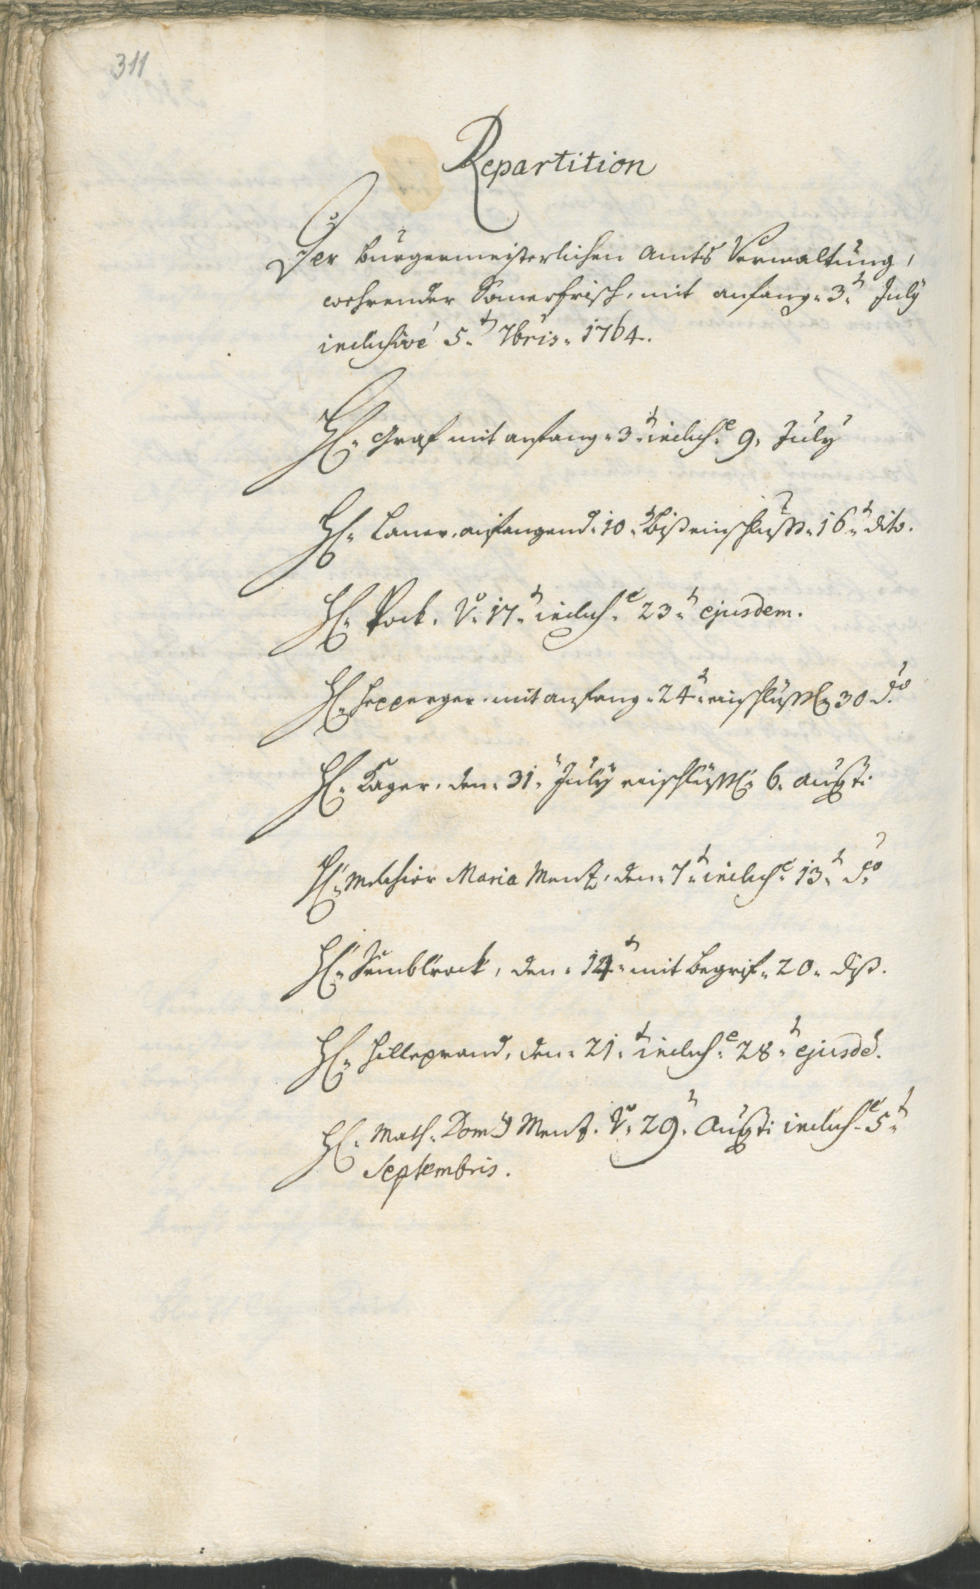 311
Repartition
Der burgermeisterlichen Amts Verwaltung,
wehrender Somerfrisch, mit anfang 3.t July
inclusivè 5.t 7bris 1764.
H: Graf mit anfang 3.t inclus.e 9. July
H: Laner, anfangend 10.t biß einschluß 16.t dito.
H: Pock. V. 17.t inclus.e 23.t ejusdem.
H: Hepperger mit anfang 24.t einschlüssl. 30 d.o
H: Kager, den 31. July einschlüssl. 6. Augsti
H: Melchior Maria Menz, den 7.t inclus.e 13.t d.o
H: Sumblrock, den 14.t mit begrif 20. diß.
H: Hilleprand, den 21.t inclus.e 28.t ejusdē.
H: Math. Dom. Menz. V. 29. Augsti inclus.e 5.t
Septembris.